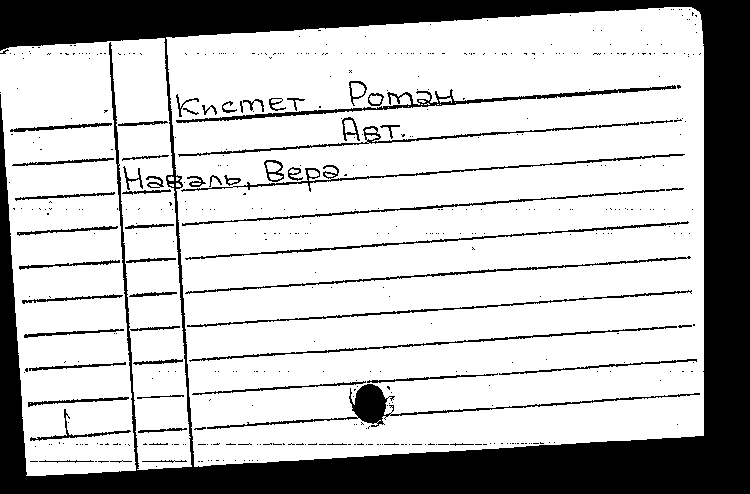 Кисмет. Роман.
Авт.
Наваль, Вера.